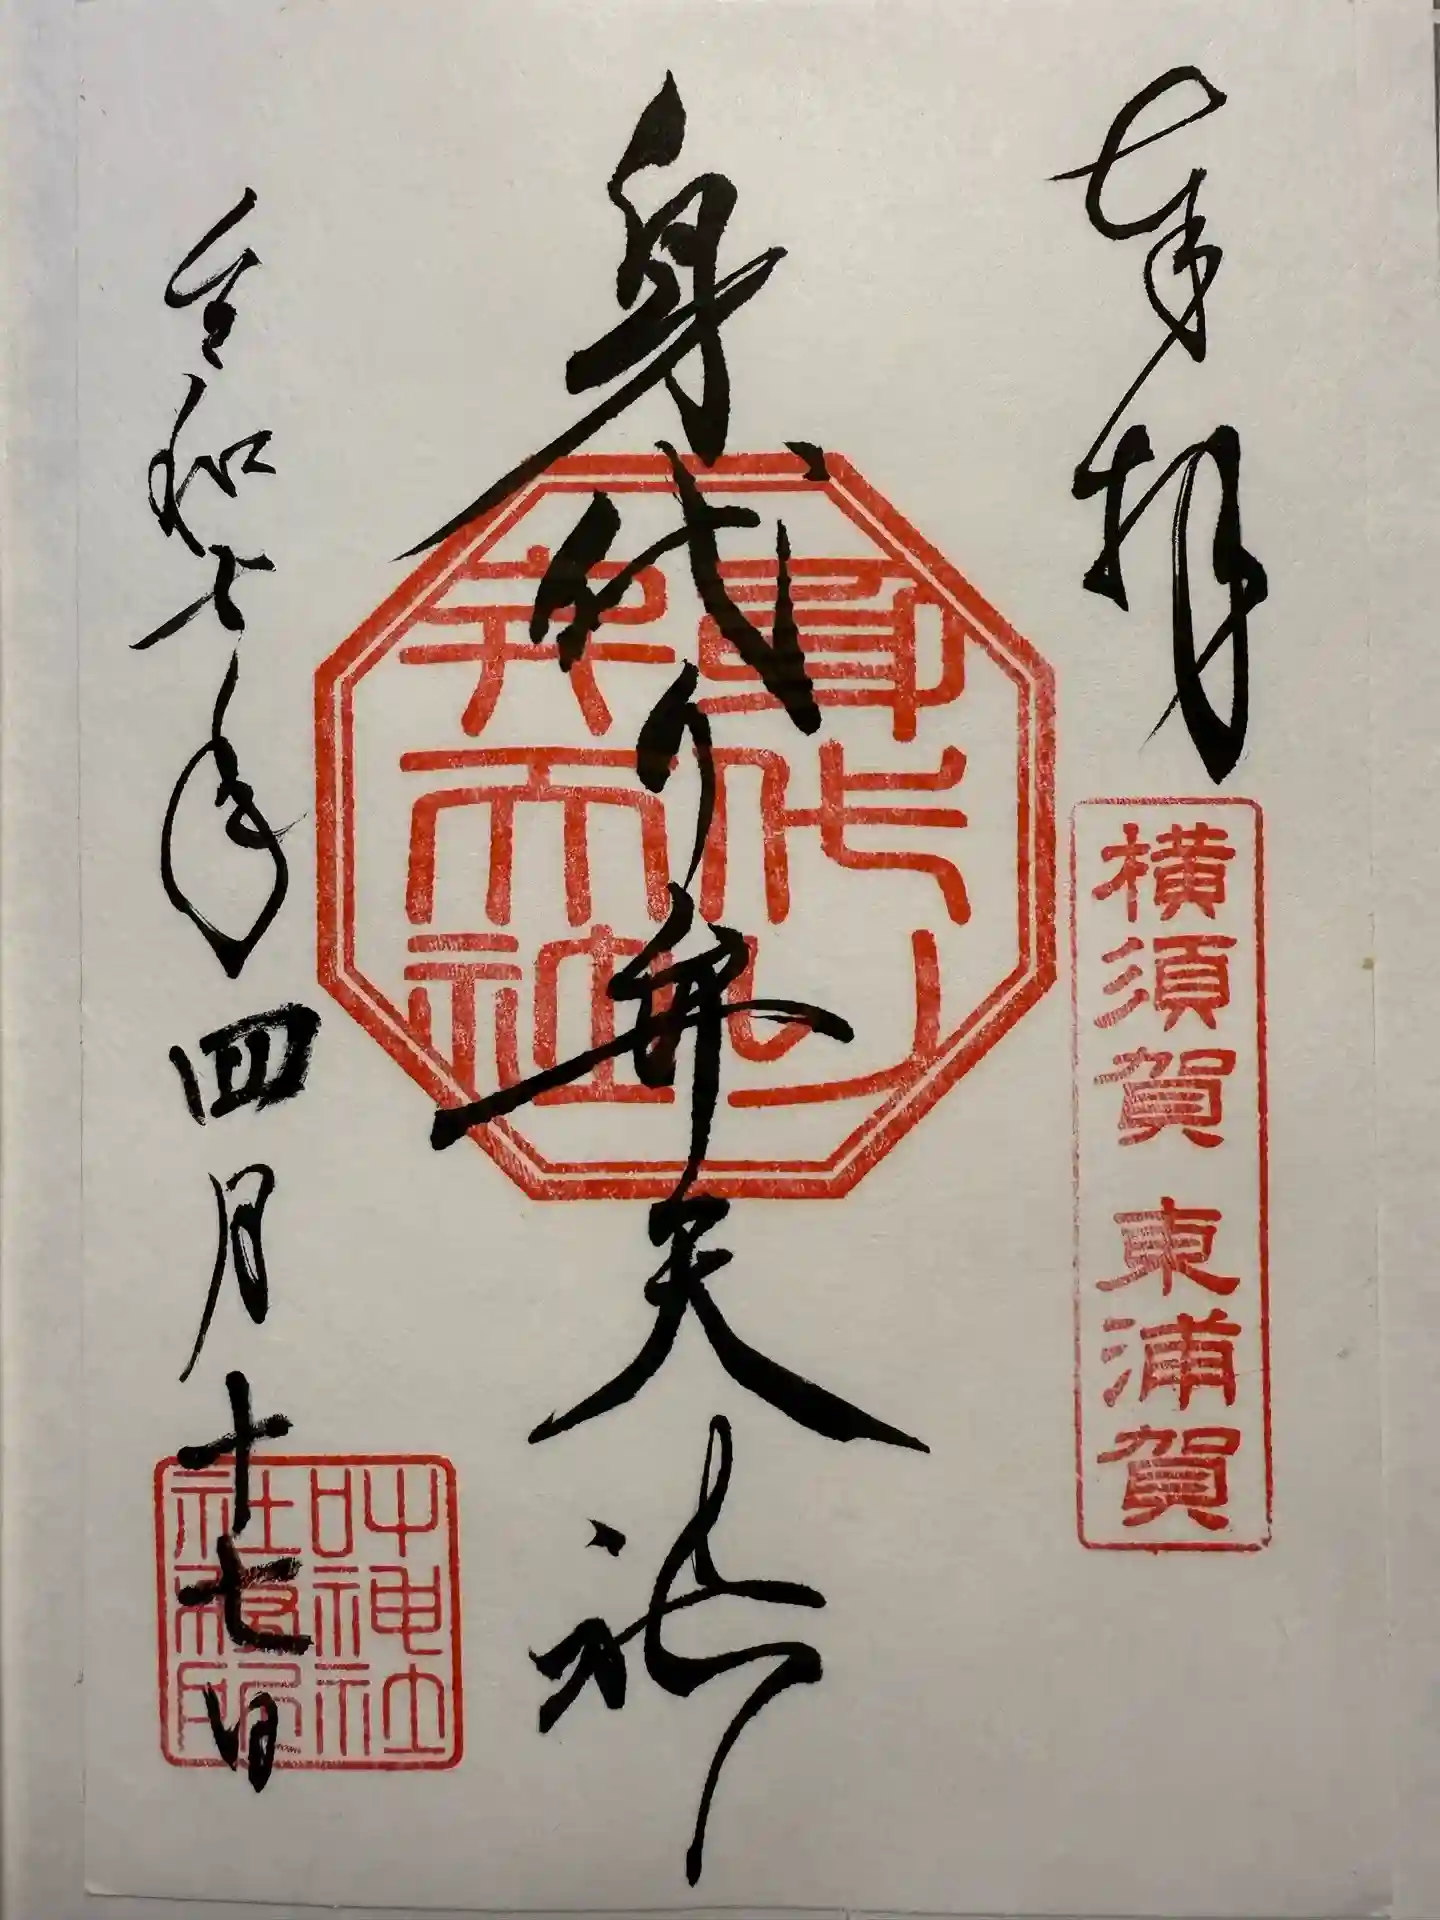 奉拝
横須賀 東浦賀
身代り弁天社
身代り弁天社
令和七年四月十七日
叶神社社務所